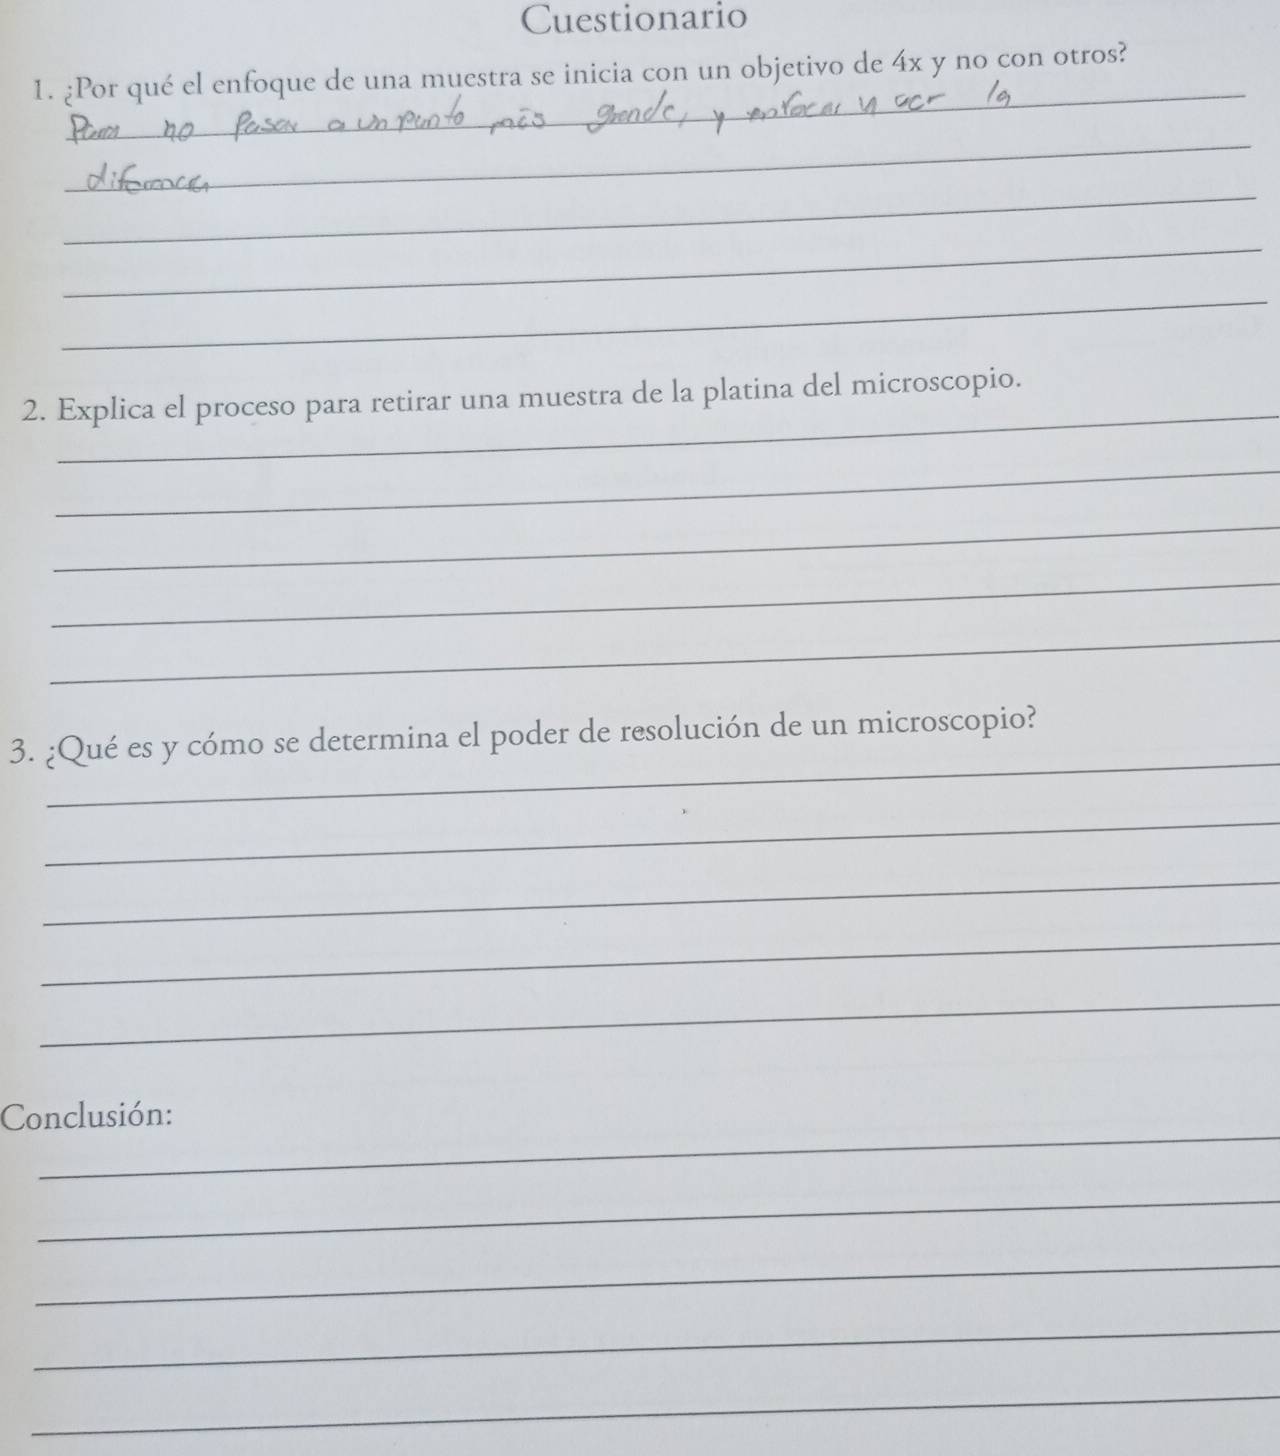 Cuestionario
1. ¿Por qué el enfoque de una muestra se inicia con un objetivo de 4x y no con otros?
Para no Pasar a un punto más grande, y enfocar y ver la
diferencia
2. Explica el proceso para retirar una muestra de la platina del microscopio.
3. ¿Qué es y cómo se determina el poder de resolución de un microscopio?
Conclusión: